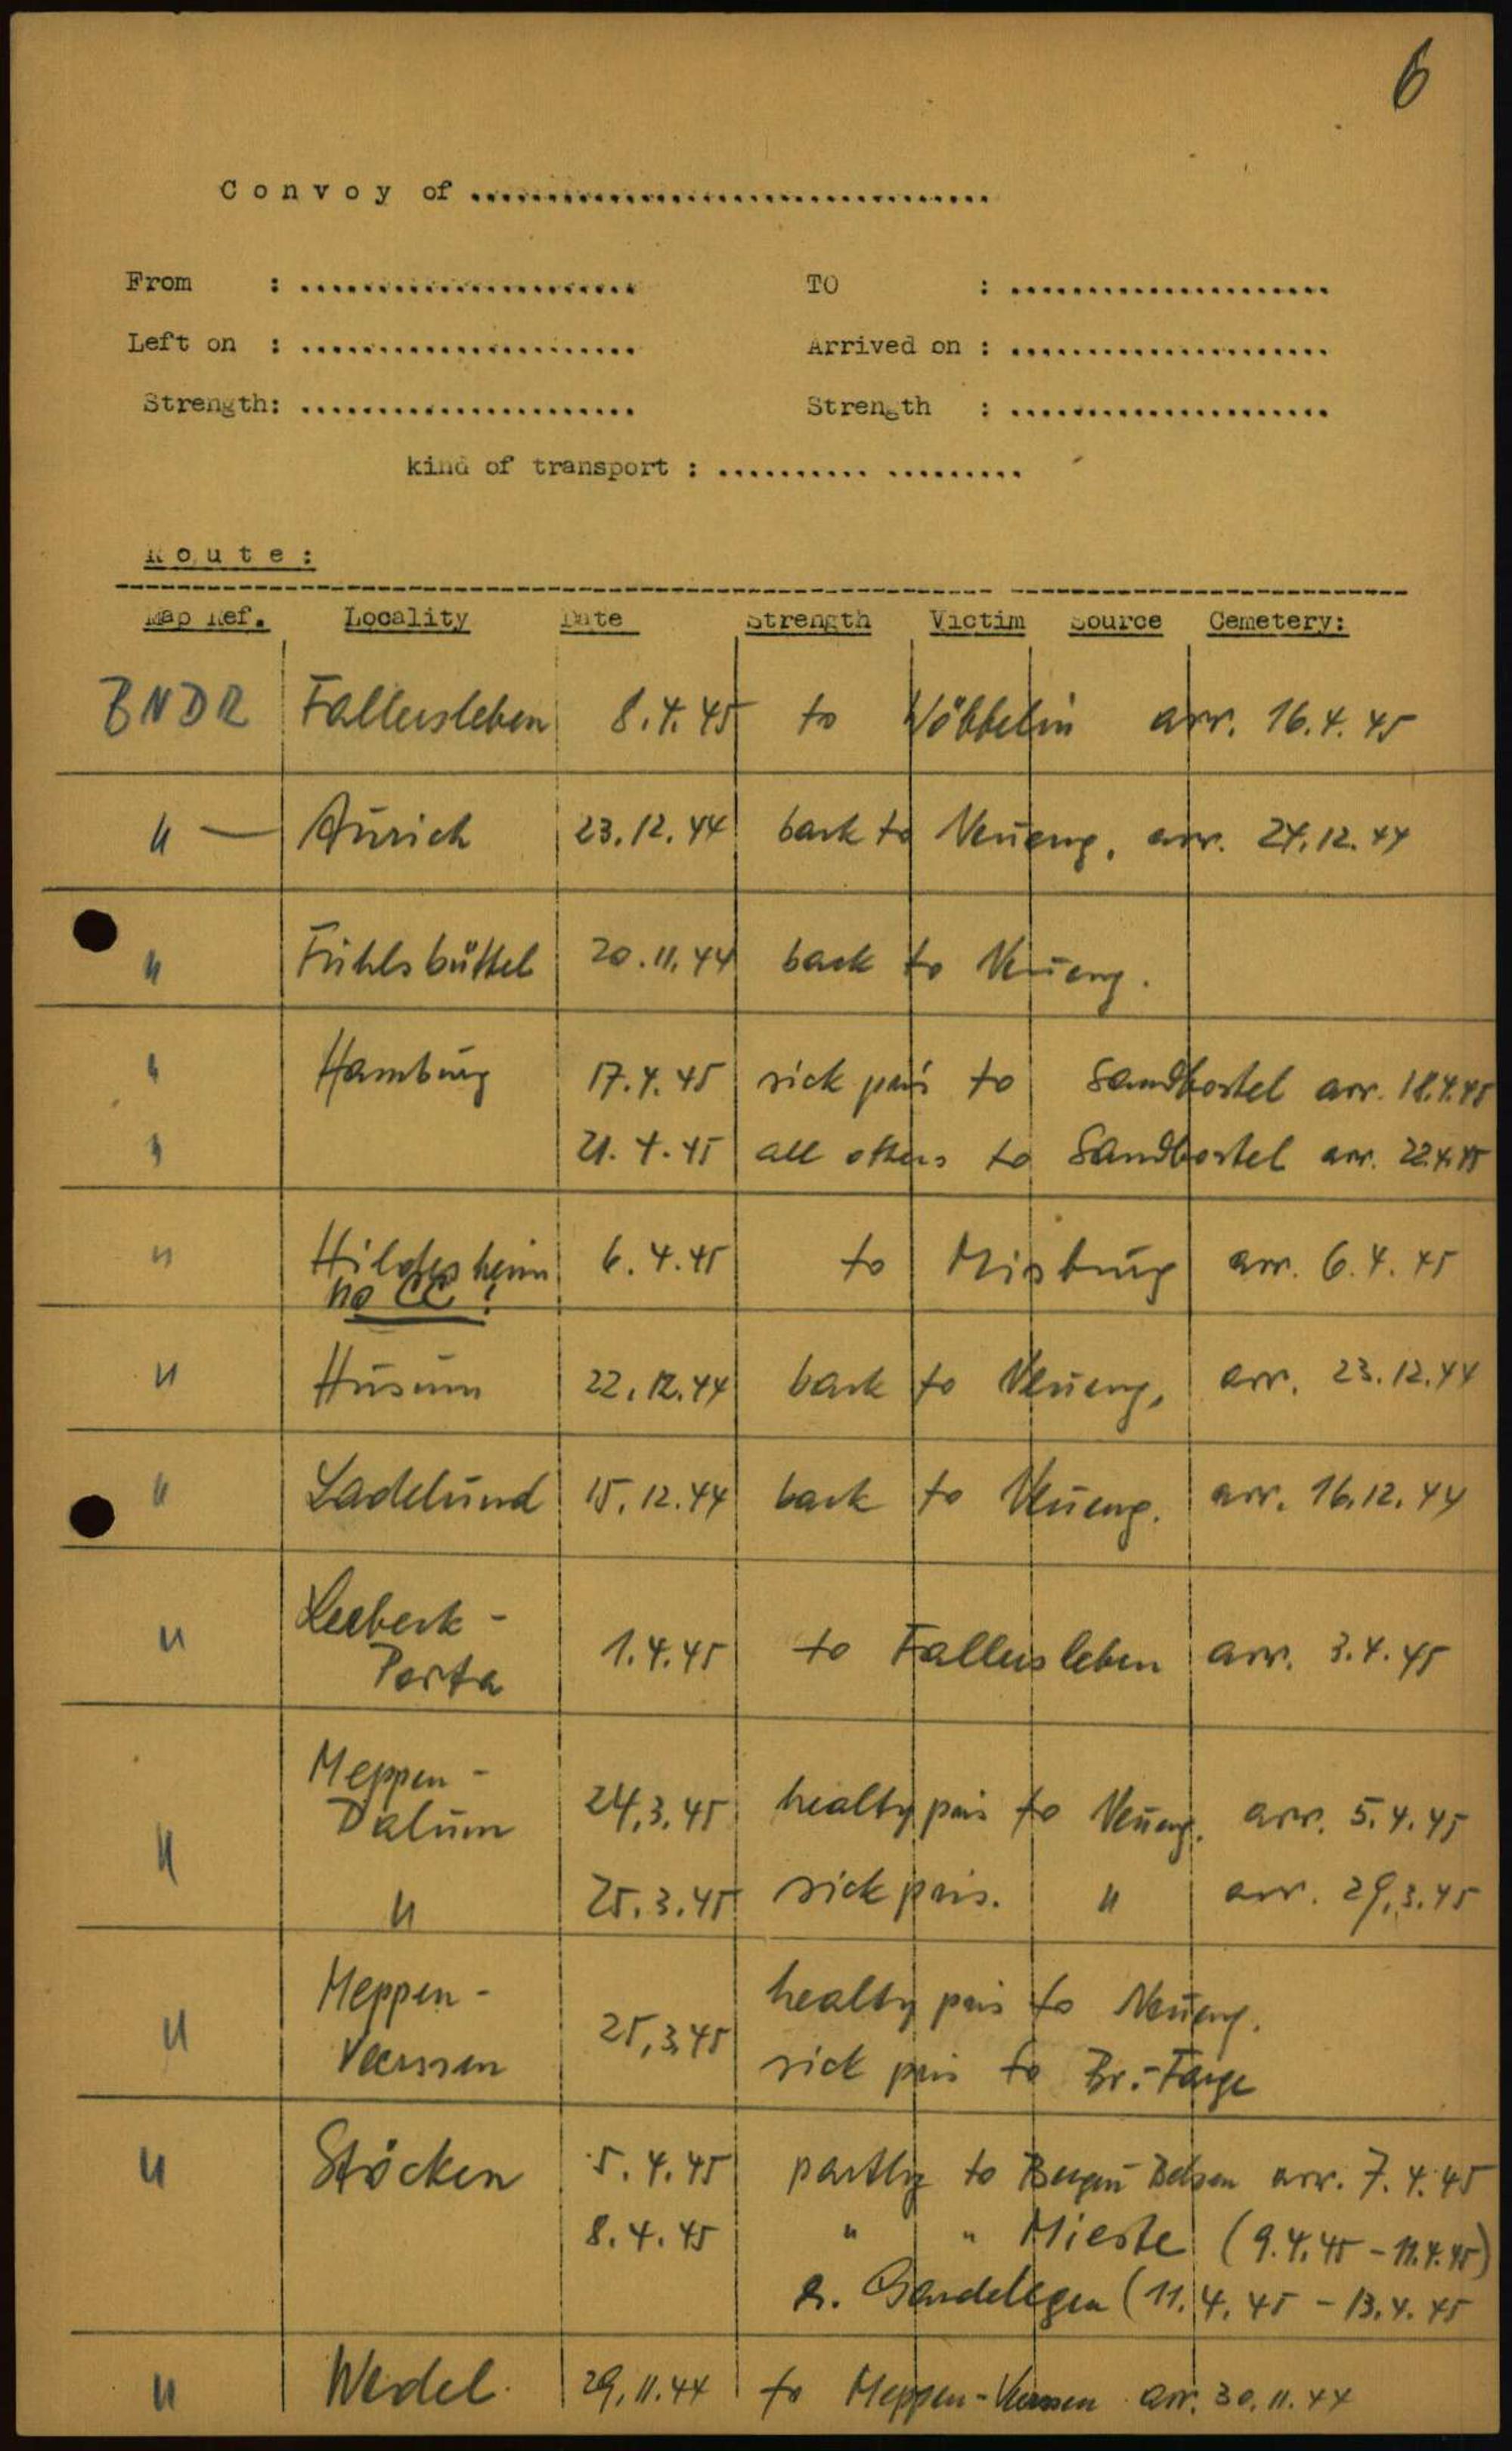 6
Convoy of ........................................
From : ...................... TO : .....................
Left on : ...................... Arrived on : .....................
Strength: ...................... Strength : .....................
kind of transport : .......... .........
Route:
Map Ref. Locality Date Strength Victim Source Cemetery:
BNDR Fallersleben 8.4.45 to Wöbbelin arr. 16.4.45
" — Aurich 23.12.44 back to Neueng. arr. 24.12.44
" Fuhlsbüttel 20.11.44 back to Neueng.
" Hamburg 17.4.45 sick pris to Sandbostel arr. 18.4.45
" 21.4.45 all others to Sandbostel arr. 22.4.45
" Hildesheim 6.4.45 to Misburg arr. 6.4.45
no CC!
" Husum 22.12.44 back to Neueng. arr. 23.12.44
" Ladelund 15.12.44 back to Neueng. arr. 16.12.44
" Lerbeck -
Porta 1.4.45 to Fallersleben arr. 3.4.45
Meppen -
" Dalum 24.3.45 healty pris to Neueng. arr. 5.4.45
" 25.3.45 sick pris. " arr. 29.3.45
" Meppen - 25.3.45 healty pris to Neueng.
Veerssen sick pris to Br.-Farge
" Stöcken 5.4.45 partly to Bergen Belsen arr. 7.4.45
8.4.45 " " Mieste (9.4.45 - 11.4.45)
a. Gardelegen (11.4.45 - 13.4.45
" Wedel. 29.11.44 to Meppen-Versen arr. 30.11.44